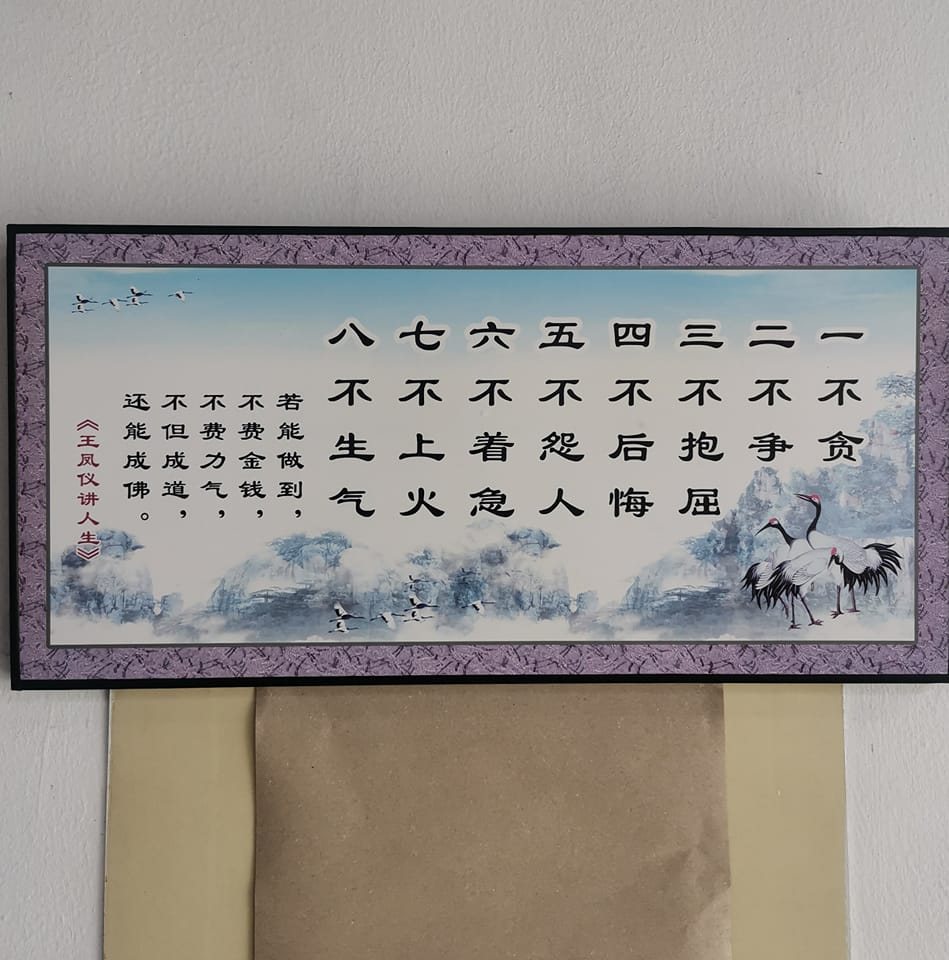 一不贪
二不争
三不抱屈
四不后悔
五不怨人
六不着急
七不上火
八不生气
若能做到，
不费金钱，
不费力气，
不但成道，
还能成佛。
《王凤仪讲人生》